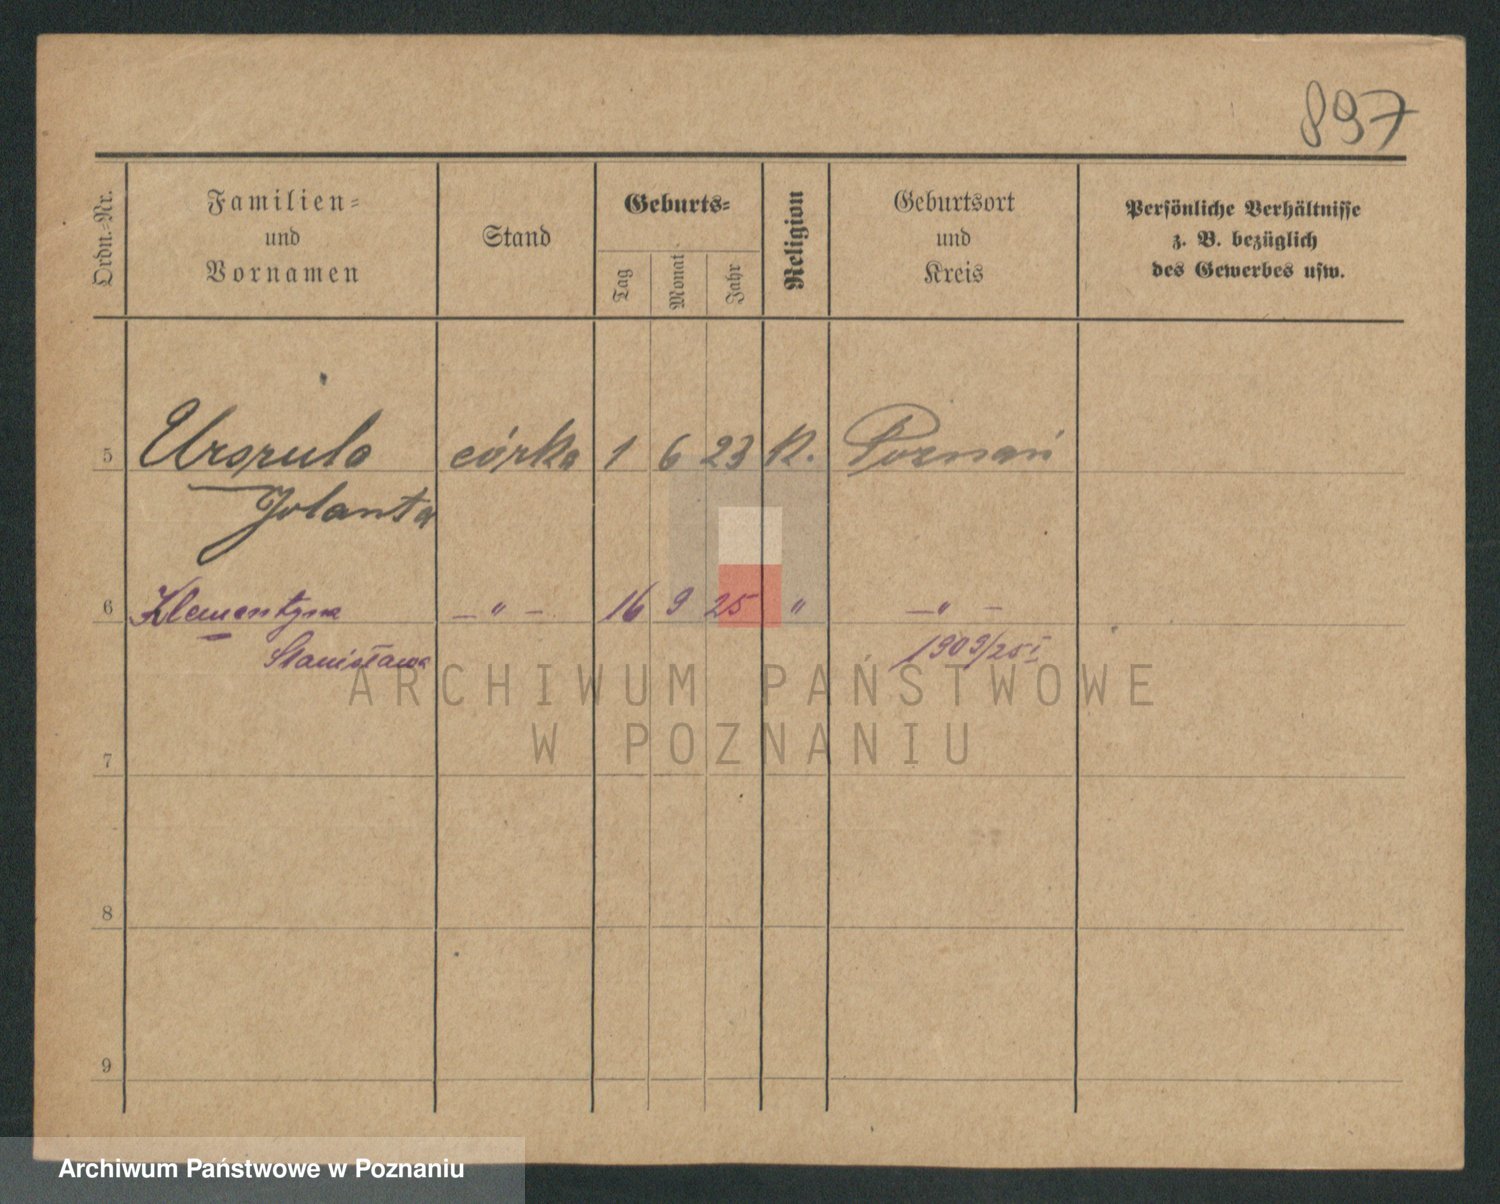 897
Ordn.-Nr.
Familien-
und
Vornamen
Stand
Geburts-
Tag
Monat
Jahr
Religion
Geburtsort
und
Kreis
Persönliche Verhältnisse
z. B. bezüglich
des Gewerbes usw.
5 Urszula córka 1 6 23 K. Poznań
Jolanta
6 Klementyna — " — 16 9 25 " — " —
Stanisława 1909/25 I
ARCHIWUM PAŃSTWOWE
W POZNANIU
7
8
9
Archiwum Państwowe w Poznaniu